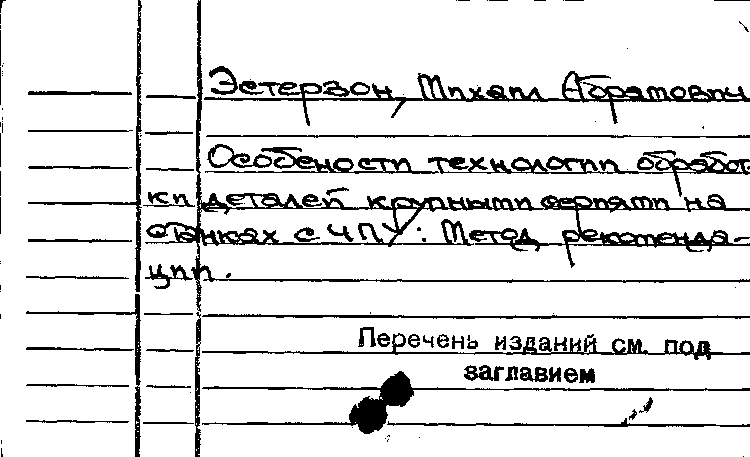 Эстерзон, Михаил Абрамович
Особености технологии обработ
ки деталей крупными сериями на
станках с ЧПУ: Метод. рекоменда-
ции.
Перечень изданий см. под
заглавием